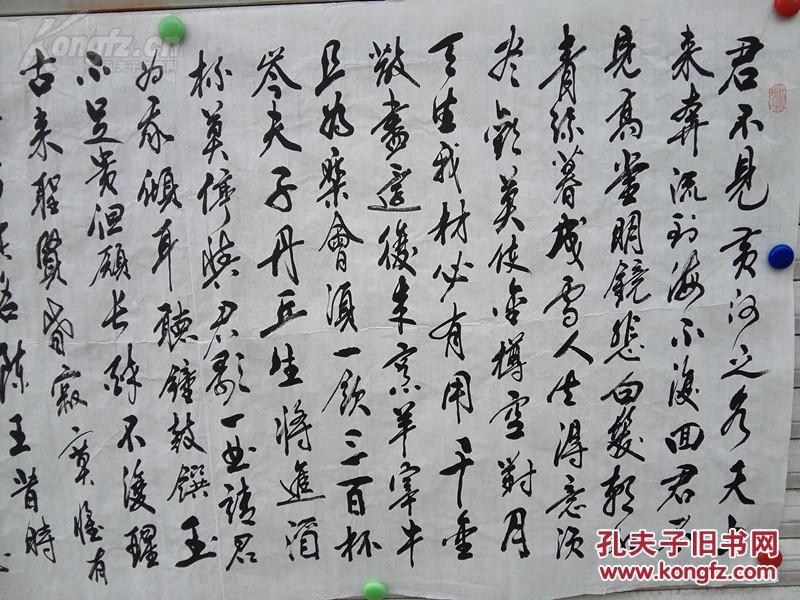 君不見黃河之水天上
来奔流到海不復回君不
見高堂明鏡悲白髮朝如
青絲暮成雪人生得意須
尽歡莫使金樽空對月
天生我材必有用千金
散盡還復来烹羊宰牛
且為樂會須一飲三百杯
岑夫子丹丘生將進酒
杯莫停與君歌一曲請君
为我傾耳聽鐘鼓饌玉
不足貴但願長醉不復醒
古来聖賢皆寂寞惟有
名陳王昔時
Kongfz.com
孔夫子旧书网
孔夫子旧书网
www.kongfz.com